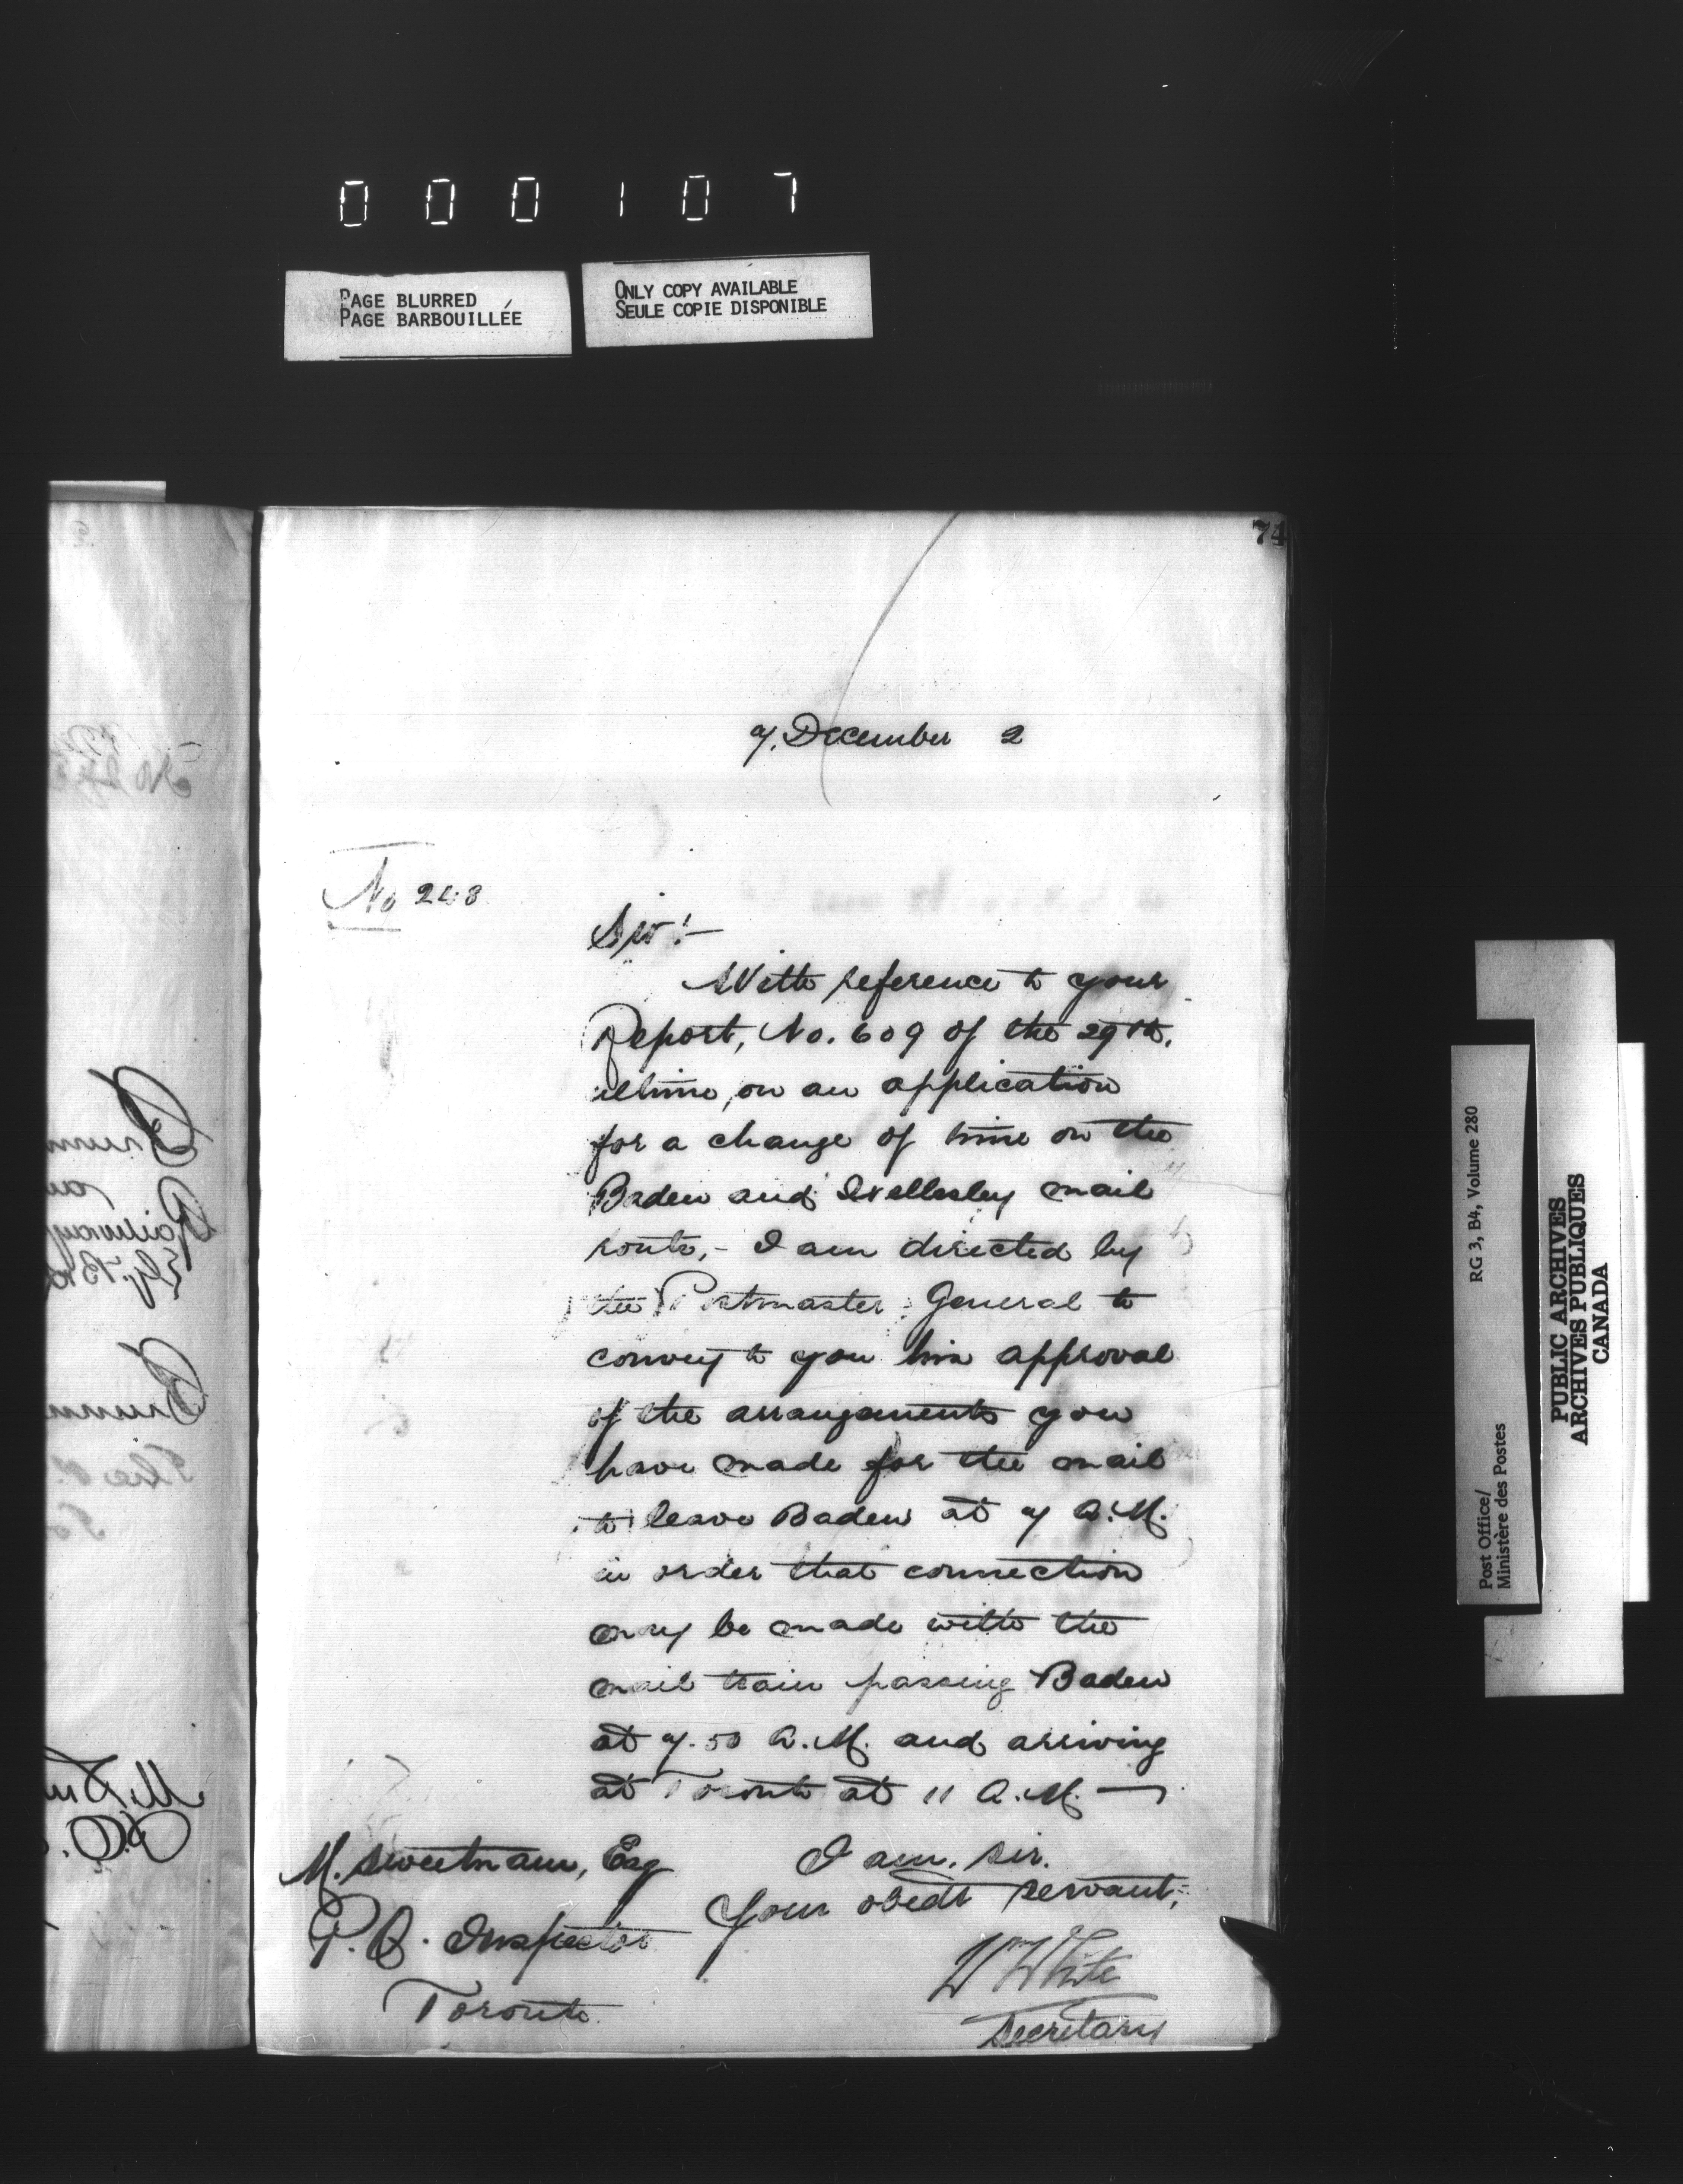 0 0 0 1 0 7
PAGE BLURRED
PAGE BARBOUILLÉE
ONLY COPY AVAILABLE
SEULE COPIE DISPONIBLE
74
7. December 2
No 248
Sir:-
With reference to your
Report, No. 609 of the 29th.
ultimo, on an application
for a change of time on the
Baden and Wellesley mail
route,- I am directed by
the Postmaster General to
convey to you his approval
of the arrangements you
have made for the mail
to leave Baden at 7 A.M.
in order that connection
may be made with the
mail train passing Baden
at 7.50 A.M. and arriving
at Toronto at 11 A.M.—
I am, sir.
Your obedt servant,
Wm White
Secretary
M. Sweetnam, Esq
P.O. Inspector
Toronto.
Post Office/
Ministère des Postes
RG 3, B4, Volume 280
PUBLIC ARCHIVES
ARCHIVES PUBLIQUES
CANADA